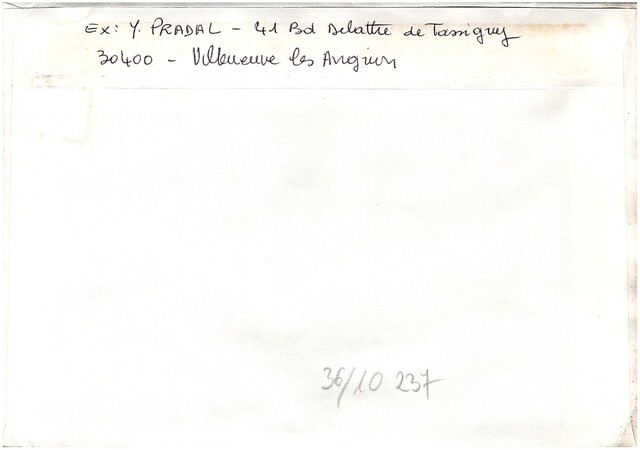 Ex: Y. PRADAL - 41 Bd Delattre de Tassigny
30400 - Villeneuve les Avignon
36/10 237